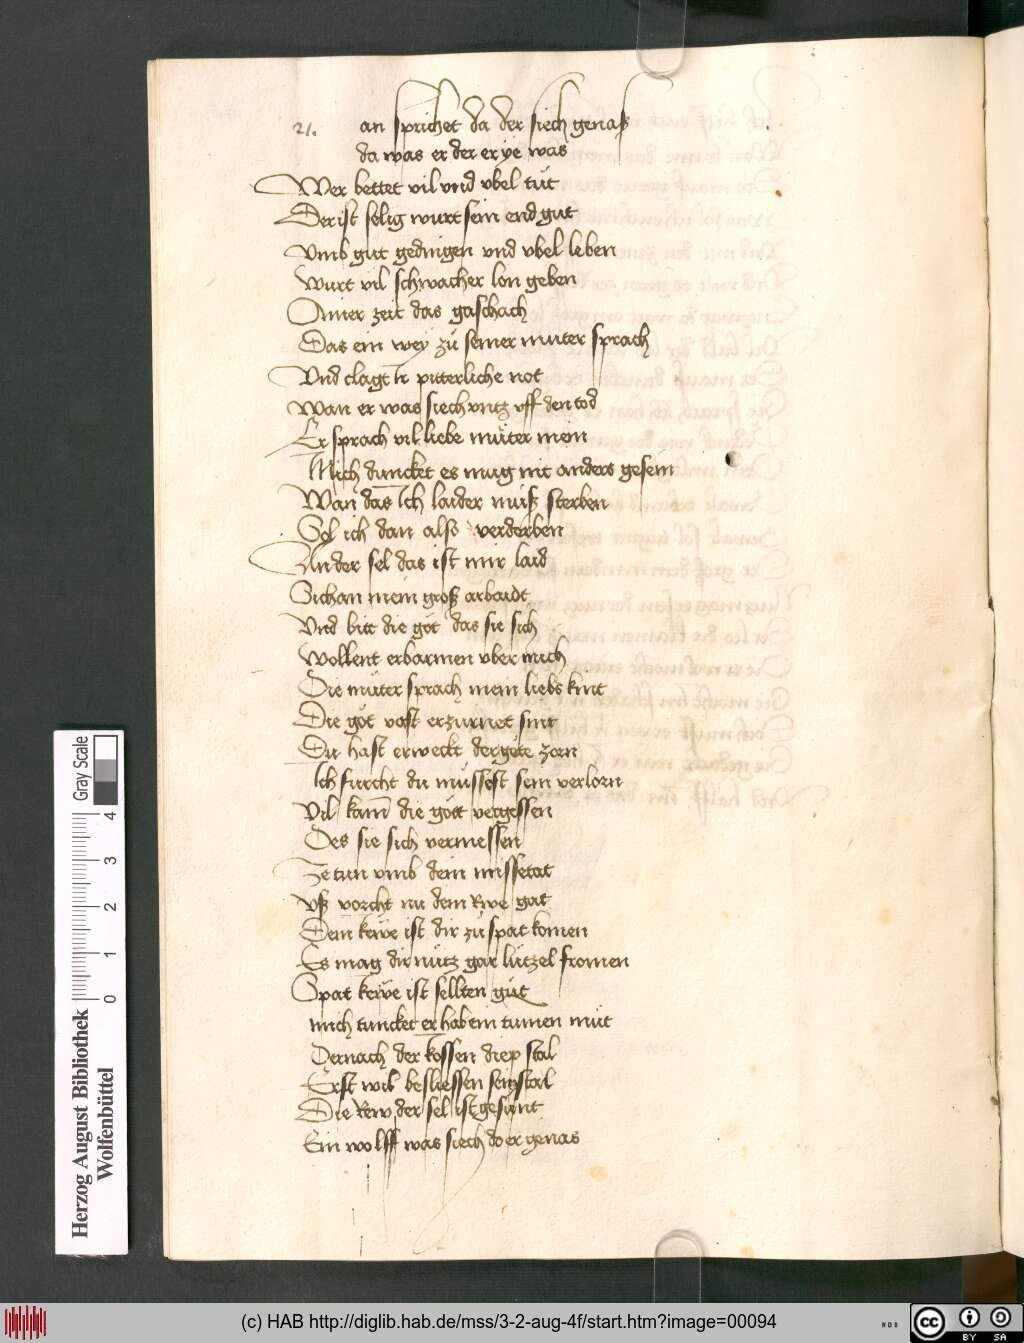 21. an sprichet da der siech genaß
da was er der er ye was
Wer bettet vil vnd vbel tůt
Der ist selig wurt sein end gůt
Vmb gůt gedingen vnd vbel leben
Wurt vil schwacher lon geben
Ainer zeit das gaschach
Das ein wey zů seiner muter sprach
Vnd clagt ir pitterliche not
Wan er was siech vntz vff den tod
Er sprach vil liebe můter mein
Mich duncket es mug nit anders gesein
Wan das Ich laider můß sterben
Sol ich dan also verderben
An der sel das ist mir laid
Sich an mein groß arbaidt
Vnd bitt die göt das sie sich
Wollent erbarmen vber mich
Die můter sprach mein liebs kint
Die göt vast erzurnet sint
Du hast erweckt der göte zorn
Ich furcht du mussest sein verlorn
Vil kam die gött vergessen
Des sie sich vermessen
Ze tun vmb dein missetat
vß vorcht nu dem Rwe gat
Dein kewe ist dir zů spat komen
Es mag dir nütz gar lützel fromen
Spat kewe ist sellten gůt
mich tuncket er hab ein tumen můt
Der nach der kossen diep stal
Erst wil besliessen sein stal
Die Rew der sel ist gesunt
Ein wolff was siech do er genas
Herzog August Bibliothek
Wolfenbüttel
0 1 2 3 4
Gray Scale
(c) HAB http://diglib.hab.de/mss/3-2-aug-4f/start.htm?image=00094
WDB
cc BY SA